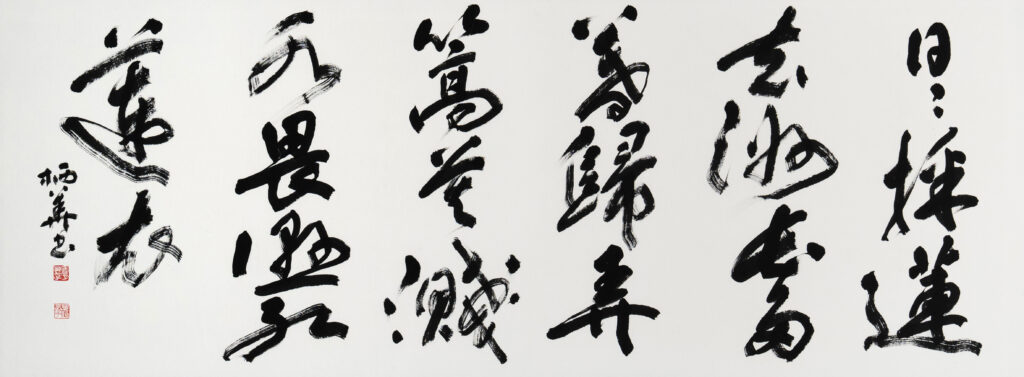 日〻採蓮
去洲長多
暮歸弄
篙莫濺
水畏濕紅
蓮衣
栖華书